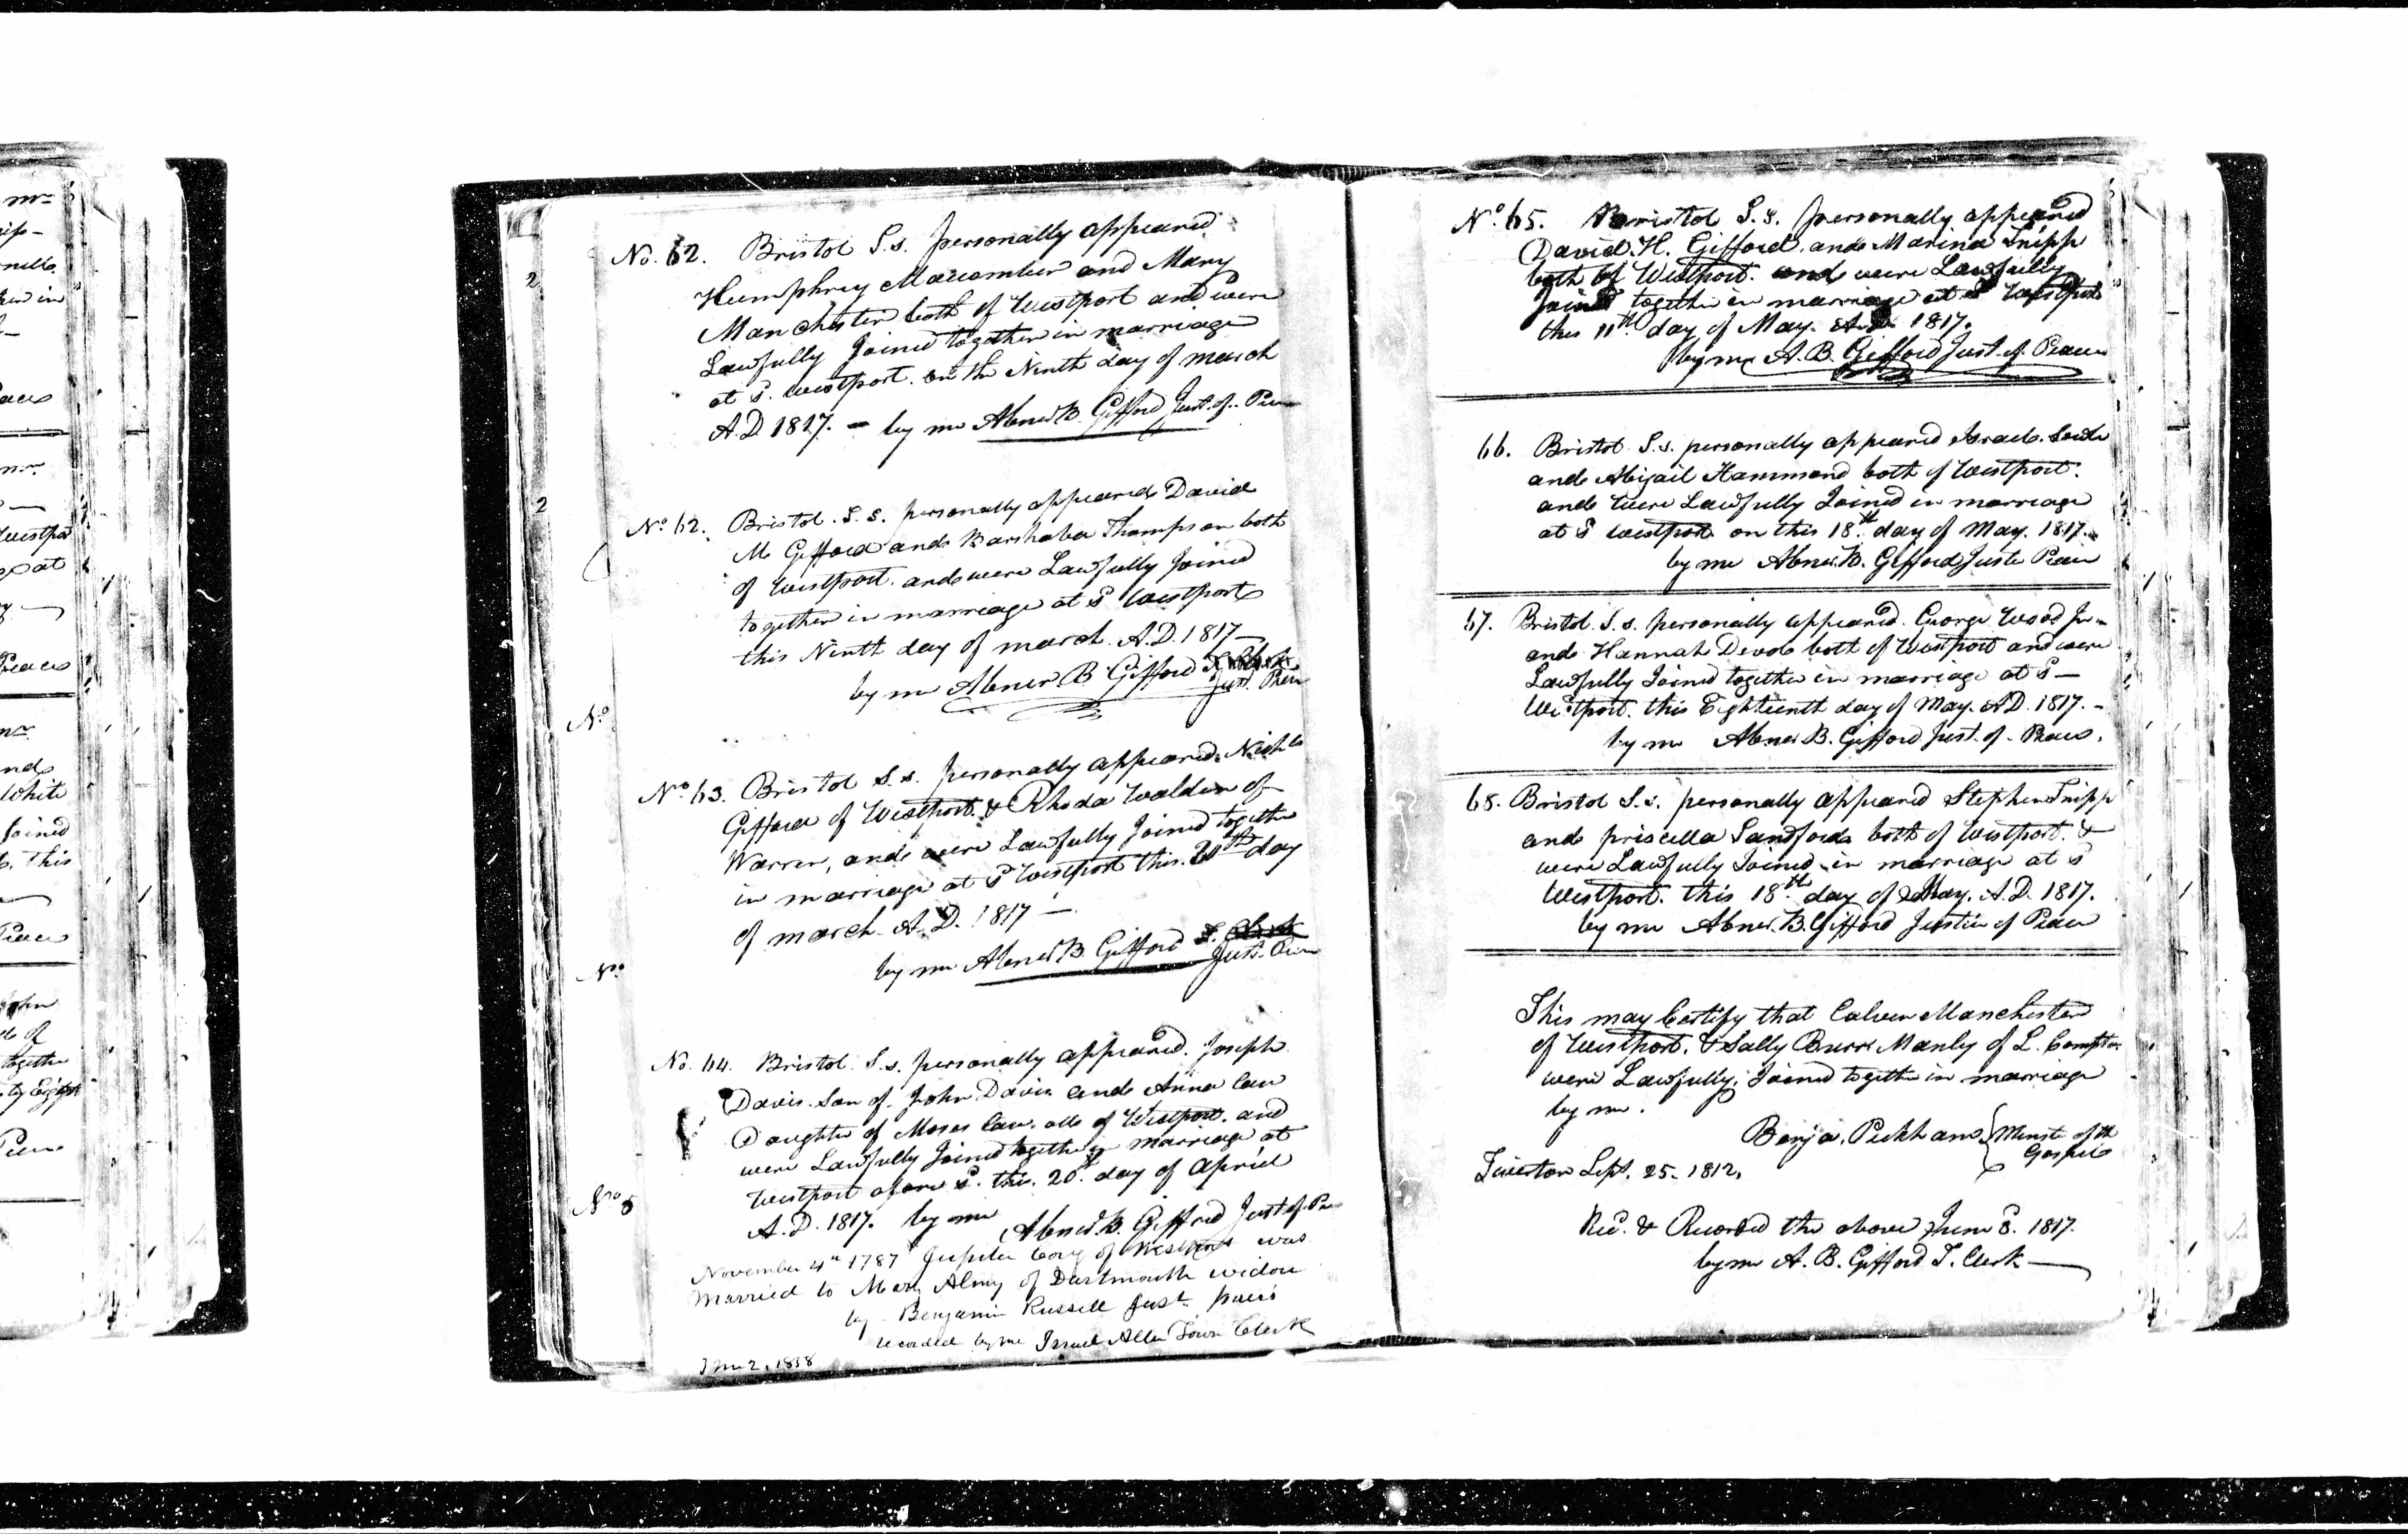 No. 62. Bristol S.s. personally appeared
Humphrey Macomber and Mary
Manchester both of Westport and were
Lawfully Joined together in marriage
at s. westport. on the Ninth day of march
A.D. 1817. - by me Abner B. Gifford Just. of. Peace
No. 62. Bristol. S.S. personally appeared David
M Gifford and Barshaba Thompson both
of Westport. and were Lawfully Joined
together in marriage at sd Westport
this Ninth day of march. A.D. 1817 -
by me Abner. B. Gifford T. Clerk
Just. Peace
No. 63. Bristol S.s. personally appeared. Nichls
Gifford of Westport. & Rhoda Walden of
Warren, and were Lawfully Joined together
in marriage at sd Westport this. 20th day
of march. A.D. 1817 -
by me Abner B. Gifford T. Clerk
Just. Peace
No. 64. Bristol. S.s. personally appeared. Joseph
Davis. Son of. John Davis and Anna
Daughter of Moses all of Westport. and
were Lawfully Joined together in marriage at
Westport afore sd. this. 20th. day of April
A.D. 1817. by me Abner. B. Gifford Just. of. Peace
November 4th 1787 Jupiter Cory of Westport was
Married to Mary Almy of Dartmouth widow
by Benjamin Russell Just. peace
recorded by me Israel Allen Town Clerk
2. 1838
No. 65. Bristol S.s. personally appeared
David. H. Gifford. and Marina Tripp
both of Westport. and were Lawfully
Joined together in marriage at sd Westport
this 11th day of May. A.D. 1817.
by me A. B. Gifford Just. of. Peace
66. Bristol S.s. personally appeared Israel.
and Abigail Hammond both of Westport.
and were Lawfully Joined in marriage
at sd westport on this 18th day of May. 1817.
by me Abner. B. Gifford Juste Peace
67. Bristol. S.s. personally appeared. George Wood Jr -
and Hannah Devol both of Westport and were
Lawfully Joined together in marriage at sd -
Westport. this Eighteenth day of May. A.D. 1817. -
by me Abner B. Gifford Just. of. Peace.
68. Bristol S.s. personally appeared Stephen Tripp
and priscilla Sandford both of Westport. &
were Lawfully Joined in marriage at sd
Westport. this 18th day of May. A.D. 1817.
by me Abner. B. Gifford Justice of Peace
This may Certify that Calven Manchester
of Westport. & Sally Burr Manly of L. Compton
were Lawfully Joined together in marriage
by me.
Benja. Peckham Minste of th
Gospel
Tiverton Sept. 25. 1812.
Recd. & Recorded the above June 8. 1817.
by me A. B. Gifford T. Clerk